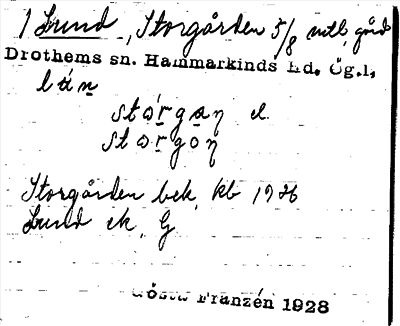 1 Lund, Storgården 5/8 mtl, gård
Drothems sn. Hammarkinds hd. Ög.l.
stårgan el.
stårgon
Storgården bek, kb 1926
Lund ek, G
Gösta Franzén 1928